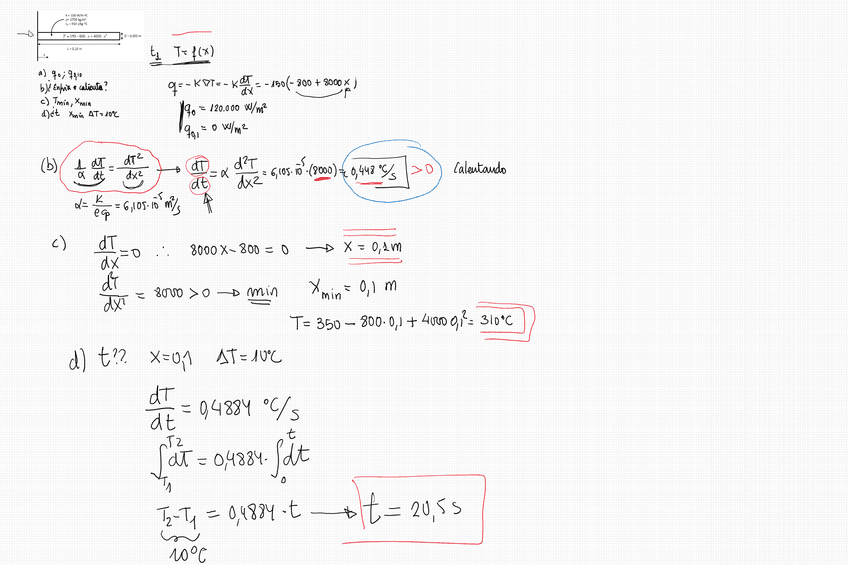 T = 350 − 800 · x + 4000 · x²
t₁ T = f(x)
a) q₀ ; q₀,₁
c) Tmin, Xmin
d) ¿t Xmin ΔT = 10°C
q = −K∇T = −K dT/dx = −150(−800 + 8000x)
q₀ = 120.000 W/m²
q₀,₁ = 0 W/m²
(b) 1/α dT/dt = dT²/dx² → dT/dt = α d²T/dx² = 6,105·10⁻⁵·(8000) = 0,448 °C/s > 0 Calentando
α = K/ρcp = 6,105·10⁻⁵ m²/s
c) dT/dx = 0 ∴ 8000x − 800 = 0 → x = 0,1 m
d²T/dx² = 8000 > 0 → min Xmin = 0,1 m
T = 350 − 800·0,1 + 4000 0,1² = 310°C
d) t?? X = 0,1 ΔT = 10°C
dT/dt = 0,4884 °C/s
∫T₁T2 dT = 0,4884·∫0t dt
T₂ − T₁ = 0,4884 · t → t = 20,5 s
10°C